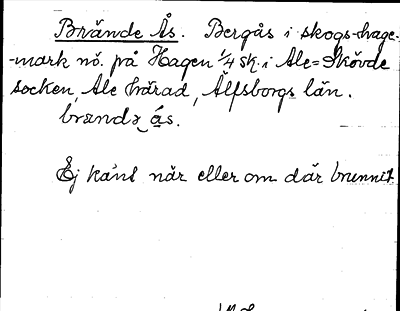 Brände Ås. Bergås i skogs-hage-
-mark nö. på Hagen 1/4 sk. i Ale=Skövde
socken, Ale härad, Älfsborgs län.
brændə ås.
Ej känt när eller om där brunnit